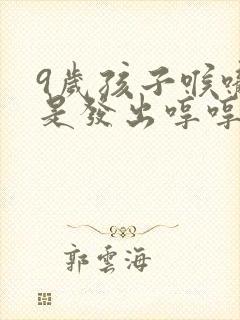 9歲孩子喉嚨
是發出哼哼
郭雲海